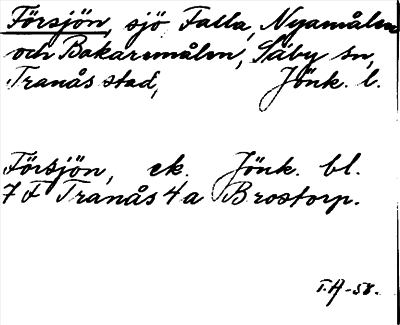 Försjön, sjö, Falla, Nyamålen
och Bakaremålen, Säby sn,
Tranås stad, Jönk. l.
Försjön, ek. Jönk. bl.
7 F Tranås 4 a Brostorp.
T.A-58.